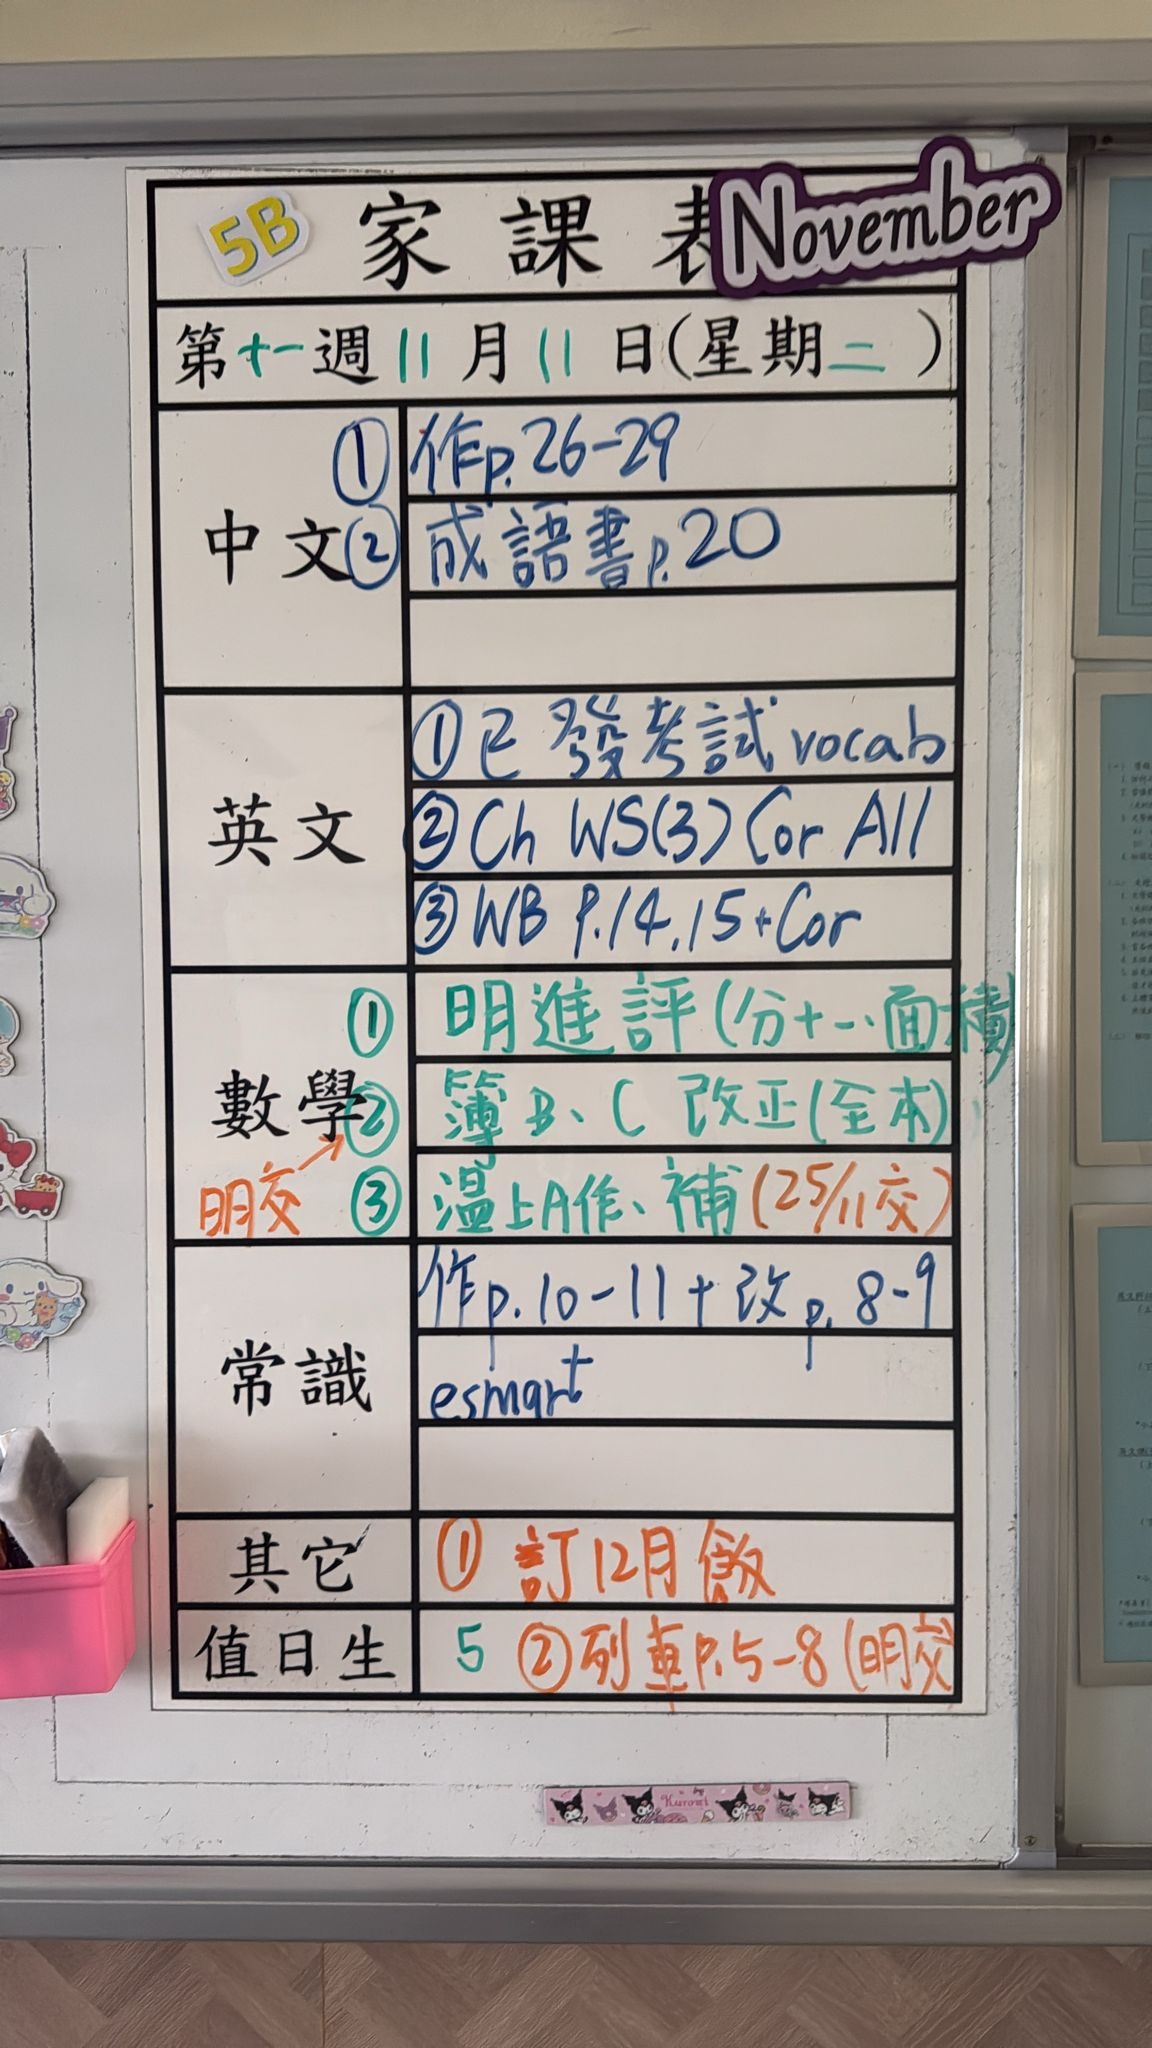 5B 家課表 November
第十一週 11 月 11 日(星期二)
中文 ① 作p.26-29
② 成語書p.20
英文 ① 已發考試vocab
② Ch WS(3) Cor All
③ WB P.14,15+Cor
數學 ① 明進評(分十一、面積)
② 簿B、C 改正(全本)
明交→
③ 溫上A作、補(25/11交)
常識 作p.10-11+改p.8-9
esmart
其它 ① 訂12月飯
值日生 5 ②列車P.5-8(明交
Kuromi